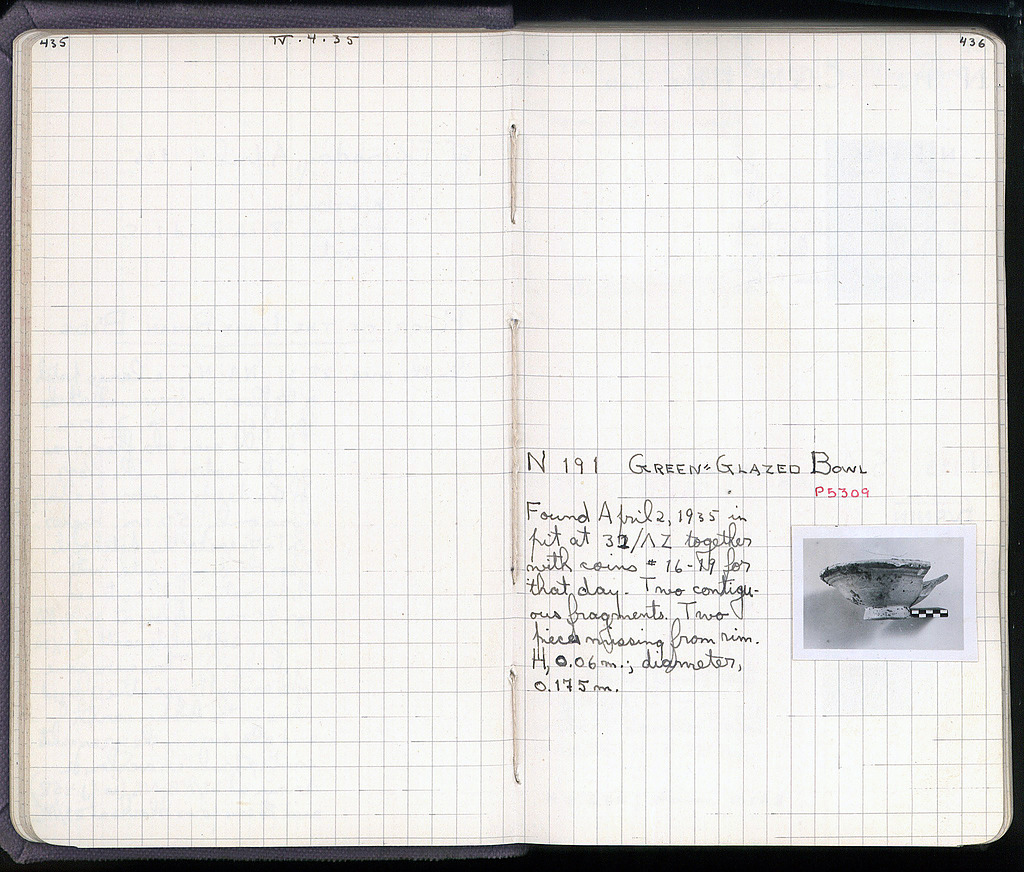 435
IV.4.35
436
N 191 GREEN-GLAZED BOWL
P5309
Found April 2, 1935 in
pit at 32/ΛΖ together
with coins # 16-19 for
that day. Two contigu-
ous fragments. Two
pieces missing from rim.
H, 0.06 m.; diameter,
0.175 m.